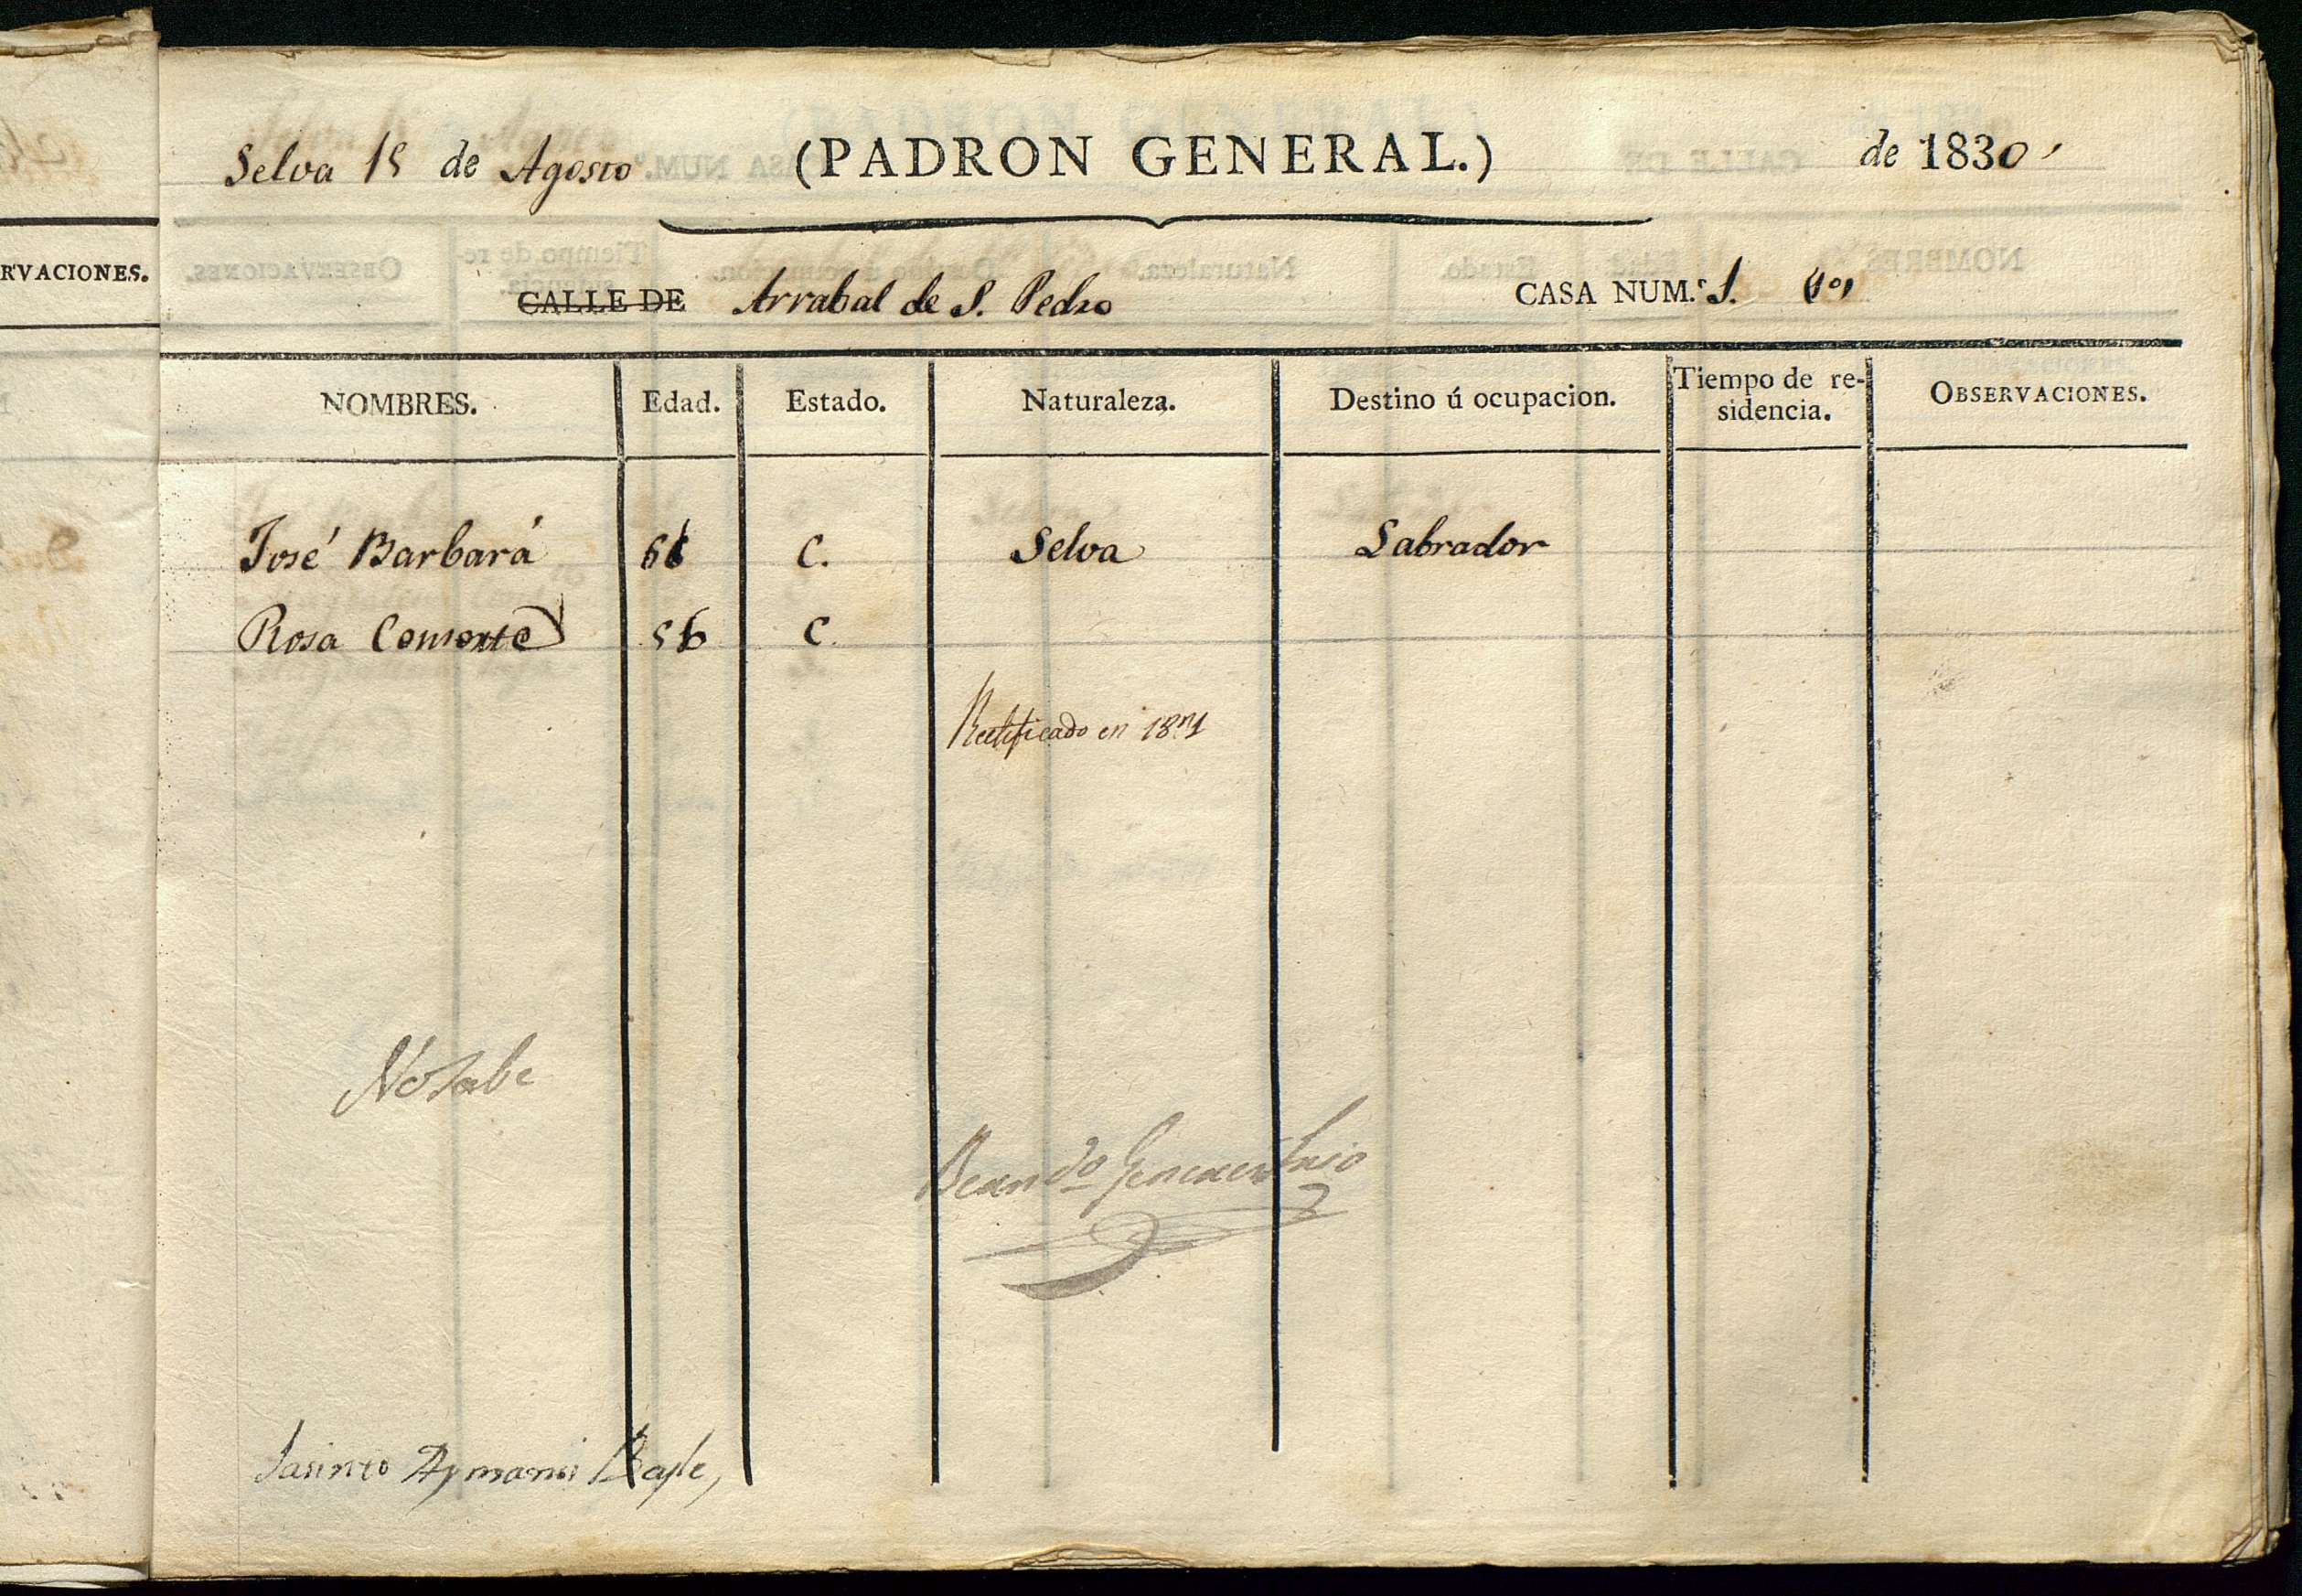 RVACIONES.
Selva 15 de Agosto (PADRON GENERAL.) de 1830
CALLE DE Arrabal de S. Pedro CASA NUM.º 1.
NOMBRES. Edad. Estado. Naturaleza. Destino ú ocupacion. Tiempo de re-
sidencia. OBSERVACIONES.
José Barbará C. Selva Labrador
Rosa Consorte 56 C.
Rectificado en
Notabe
Jasinto Aymami Bayle,